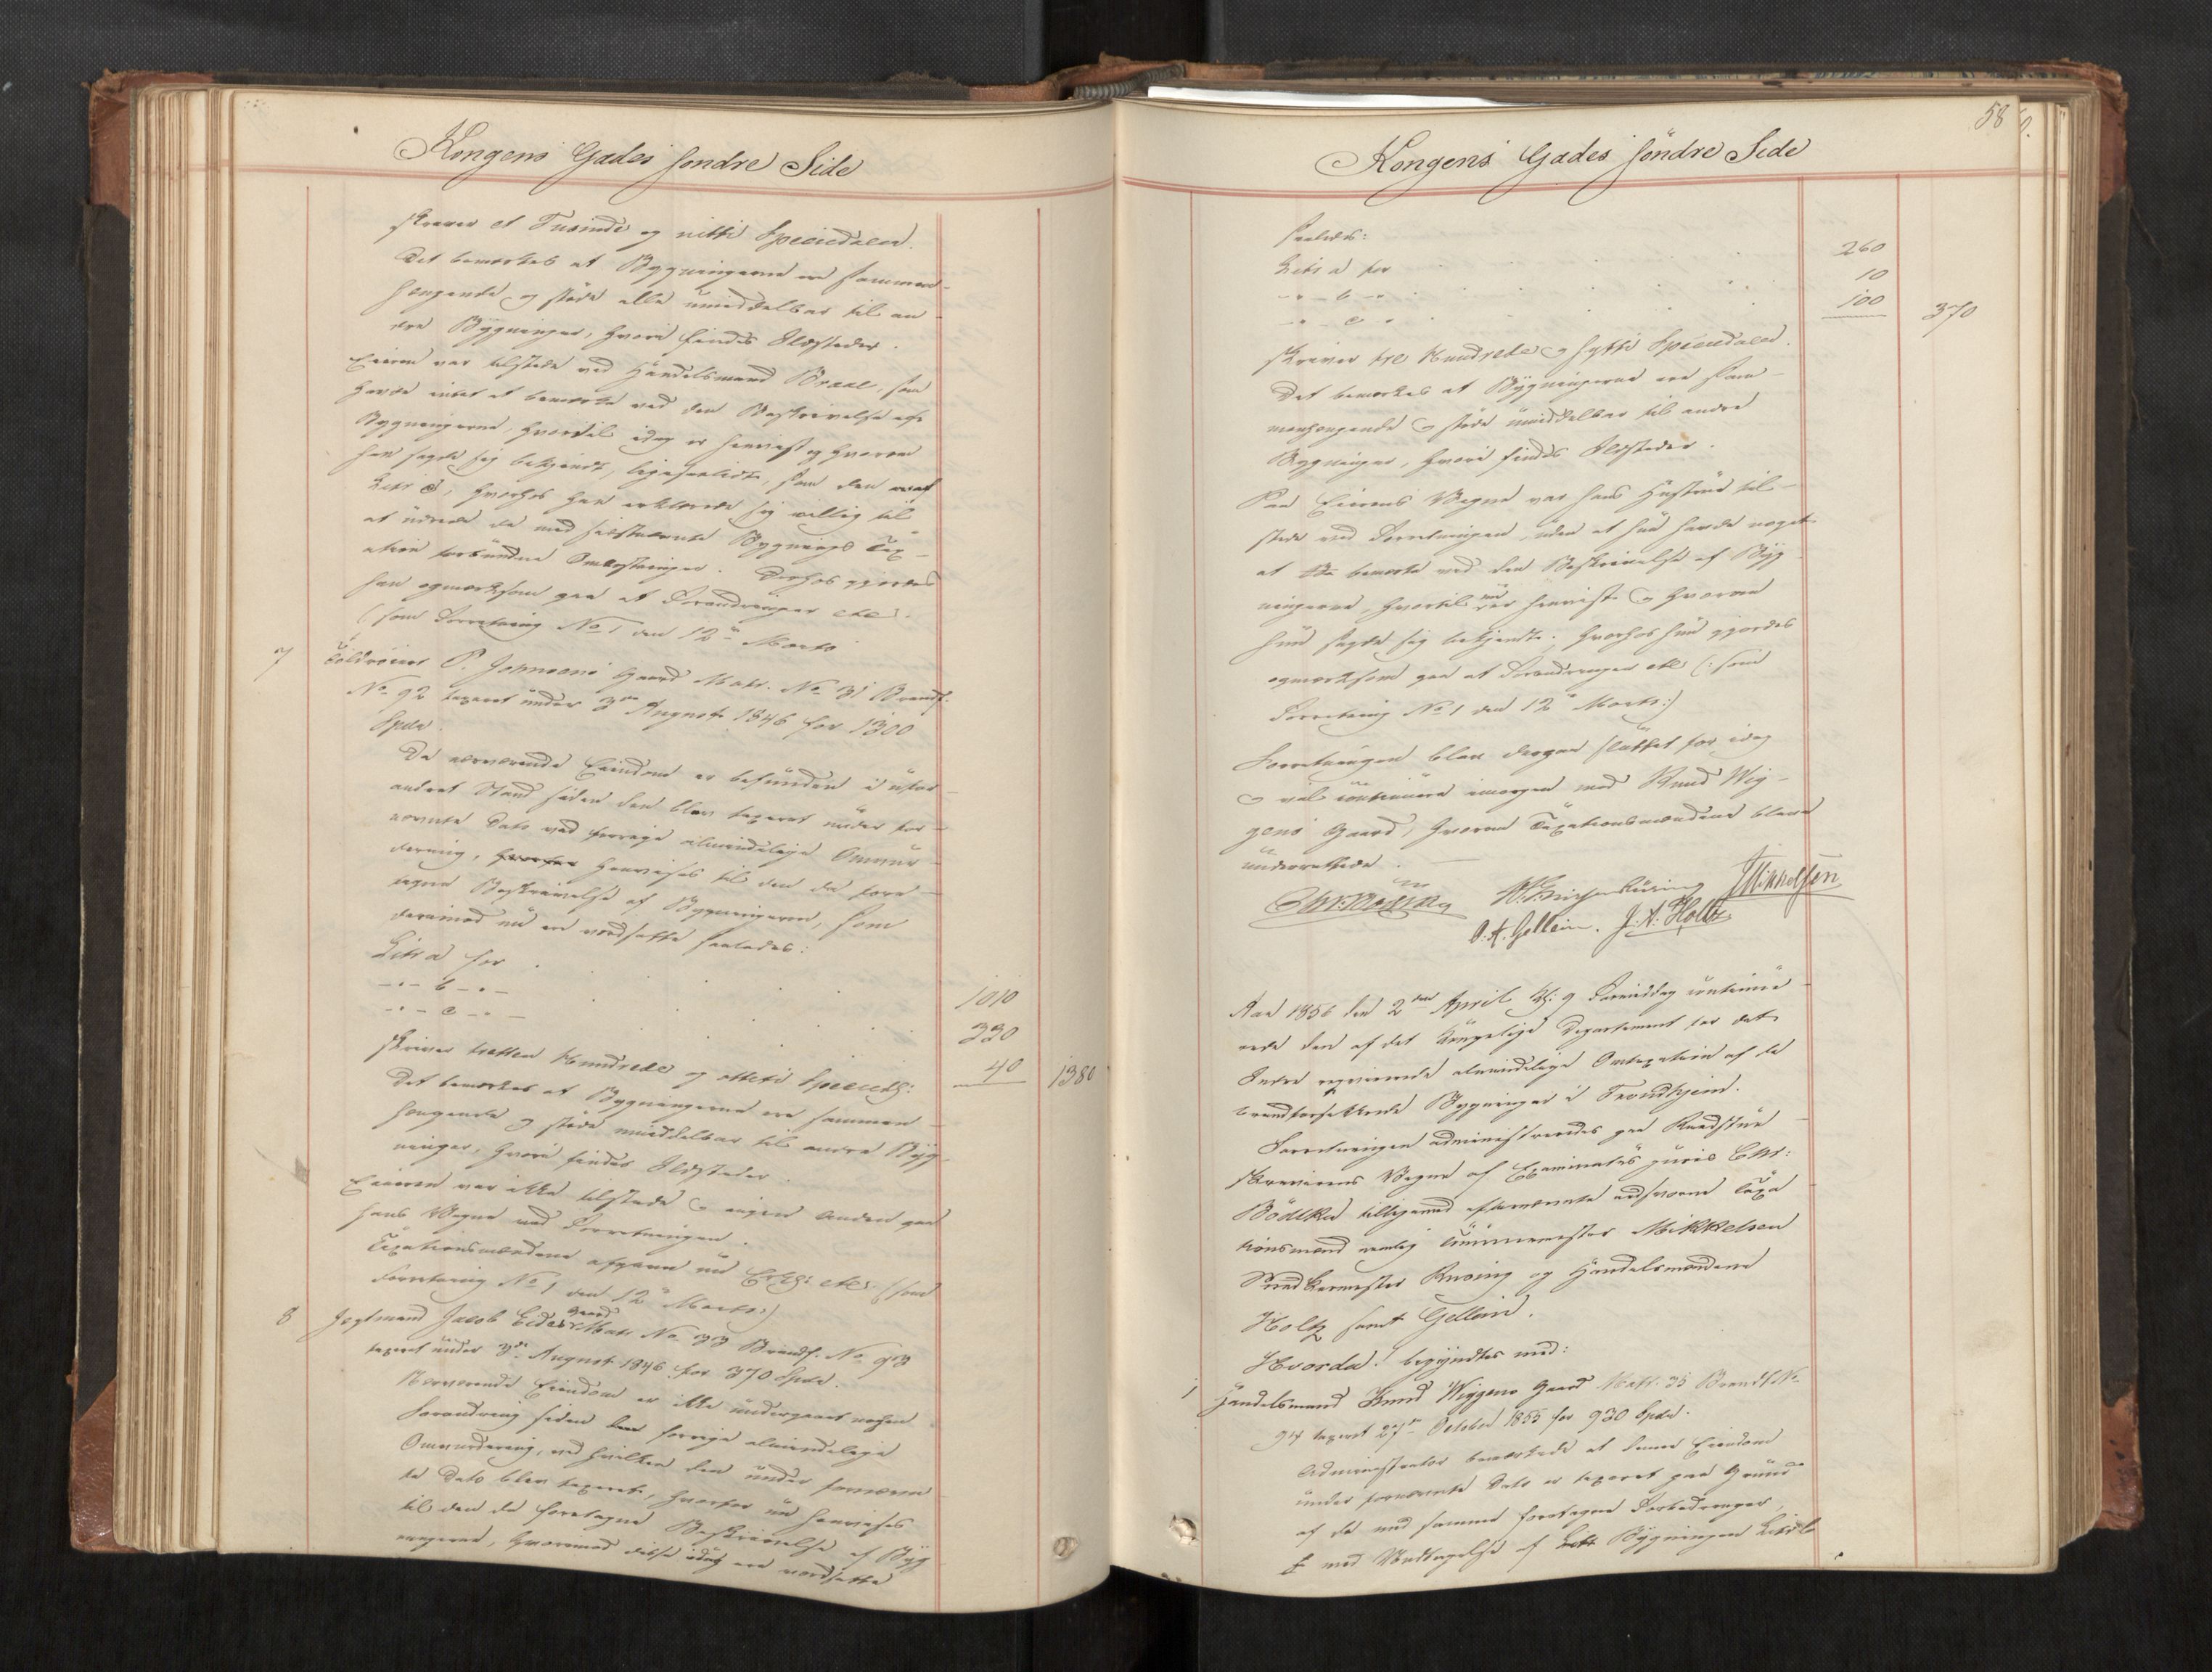 Kongens Gades søndre Side
skriver et Tusinde og nitti Speciedaler.
Det bemærkes at Bygningerne ere sammen-
hængende og støde alle umiddelbar til an
dre Bygninger, hvori findes Ildsteder.
Eieren var tilstede ved Handelsmand Braae, som
havde intet at bemærke ved den Beskrivelse af
Bygningerne, hvortil idag er henviist og hvorom
han sagde sig bekjendt, ligesaalidt, som den af
Litr d, hvorhos han erklærede sig villig til
at udrede de med sidstnævnte Bygnings Tax-
ation forbundne Omkostninger. Derhos gjordes
han opmærksom paa at Forandringer etc.
(som Forretning No 1 den 12te Marts
7 Toldroerer P. Johnsens Gaard Matr. No 31 Brandf.
No 92 taxeret under 3die August 1846 for 1300
Spdr.
Da nærværende Eiendom er befunden i ufor-
andret Stand siden den blev taxeret under for-
nævnte Dato ved forrige almindelige Omvur-
dering, henvises til den da fore-
tagne Beskrivelse af Bygningerne, som
derimod nu ere værdsatte saaledes:
Litr a for . . . 1010
-"- b -"- . . . 330
-"- c -"- . . . 40 1380
skriver tretten Hundrede og otteti Speciedlr:
Det bemærkes at Bygningerne ere sammen-
hængende og støde umiddelbar til andre Byg-
ninger, hvori findes Ildsteder.
Eieren var ikke tilstede og ingen Anden paa
hans Vegne ved Forretningen.
Taxationsmændene afgave nu Erkl: etc. (som
Forretning No 1 den 12te Marts:)
8 Jegtmand Jacob Eides Gaard Matr No 33 Brandf. No 93
taxeret under 3die August 1846 for 370 Spdr.
Nærværende Eiendom er ikke undergaaet nogen
Forandring siden forrige almindelige
Omvurdering, ved hvilken den under fornævn
te Dato blev taxeret, hvorfor nu henvises
til den da foretagne Beskrivelse af Byg
ningerne, hvorimod disse idag ere værdsatte
58
Kongens Gades søndre Side
saaledes:
Litr a for . . . 260
-"- b -"- . . . 10
-"- c " . . . 100 370
skriver tre Hundrede og sytti Speciedaler.
Det bemærkes at Bygningerne ere sam-
menhængende og støde umiddelbar til andre
Bygninger, hvori findes Ildsteder.
Paa Eierens Vegne var hans Hustrue til-
stede ved Forretningen, uden at hun havde noget
at bemærke ved den Beskrivelse af Byg
ningerne, hvortil nu er henviist og hvorom
hun sagde sig bekjendt; hvorhos hun gjordes
opmærksom paa at Forandringer etc (: som
Forretning No 1 den 12te Marts:)
Forretningen blev derpaa sluttet for idag
og vil continuere imorgen med Knud Wig-
gens Gaard, hvorom Taxationsmændene bleve
underrettede.
J Mikkelsen
O. A. Gellein. J. A. Holtz
Aar 1856 den 2den April Kl: 9 Formiddag continue-
rede den af det Kongelige Departement for det
Indre reqvirerede almindelige Omtaxation af de
brandforsikkrede Bygninger i Trondhjem.
Forretningen administreredes paa Raadstue-
skriverens Vegne af Examinatus juris Chr:
Bödtker tilligemed efternævnte edsvorne Taxa
tionsmænd nemlig Tømmermester Mikkelsen
Snedkermester Rusing og Handelsmændene
Holtz samt Gellein.
Hvorda! begyndtes med:
1 Handelsmand Knud Wiggens Gaard Matr. 35 Brandf. No
94 taxeret 27de October 1855 for 930 Spdr.
Administrator bemærkede at denne Eiendom
under fornævnte Dato er taxeret paa Grund
af de med samme foretagne Forbedringer,
med Undtagelse af Bygningen Litr b